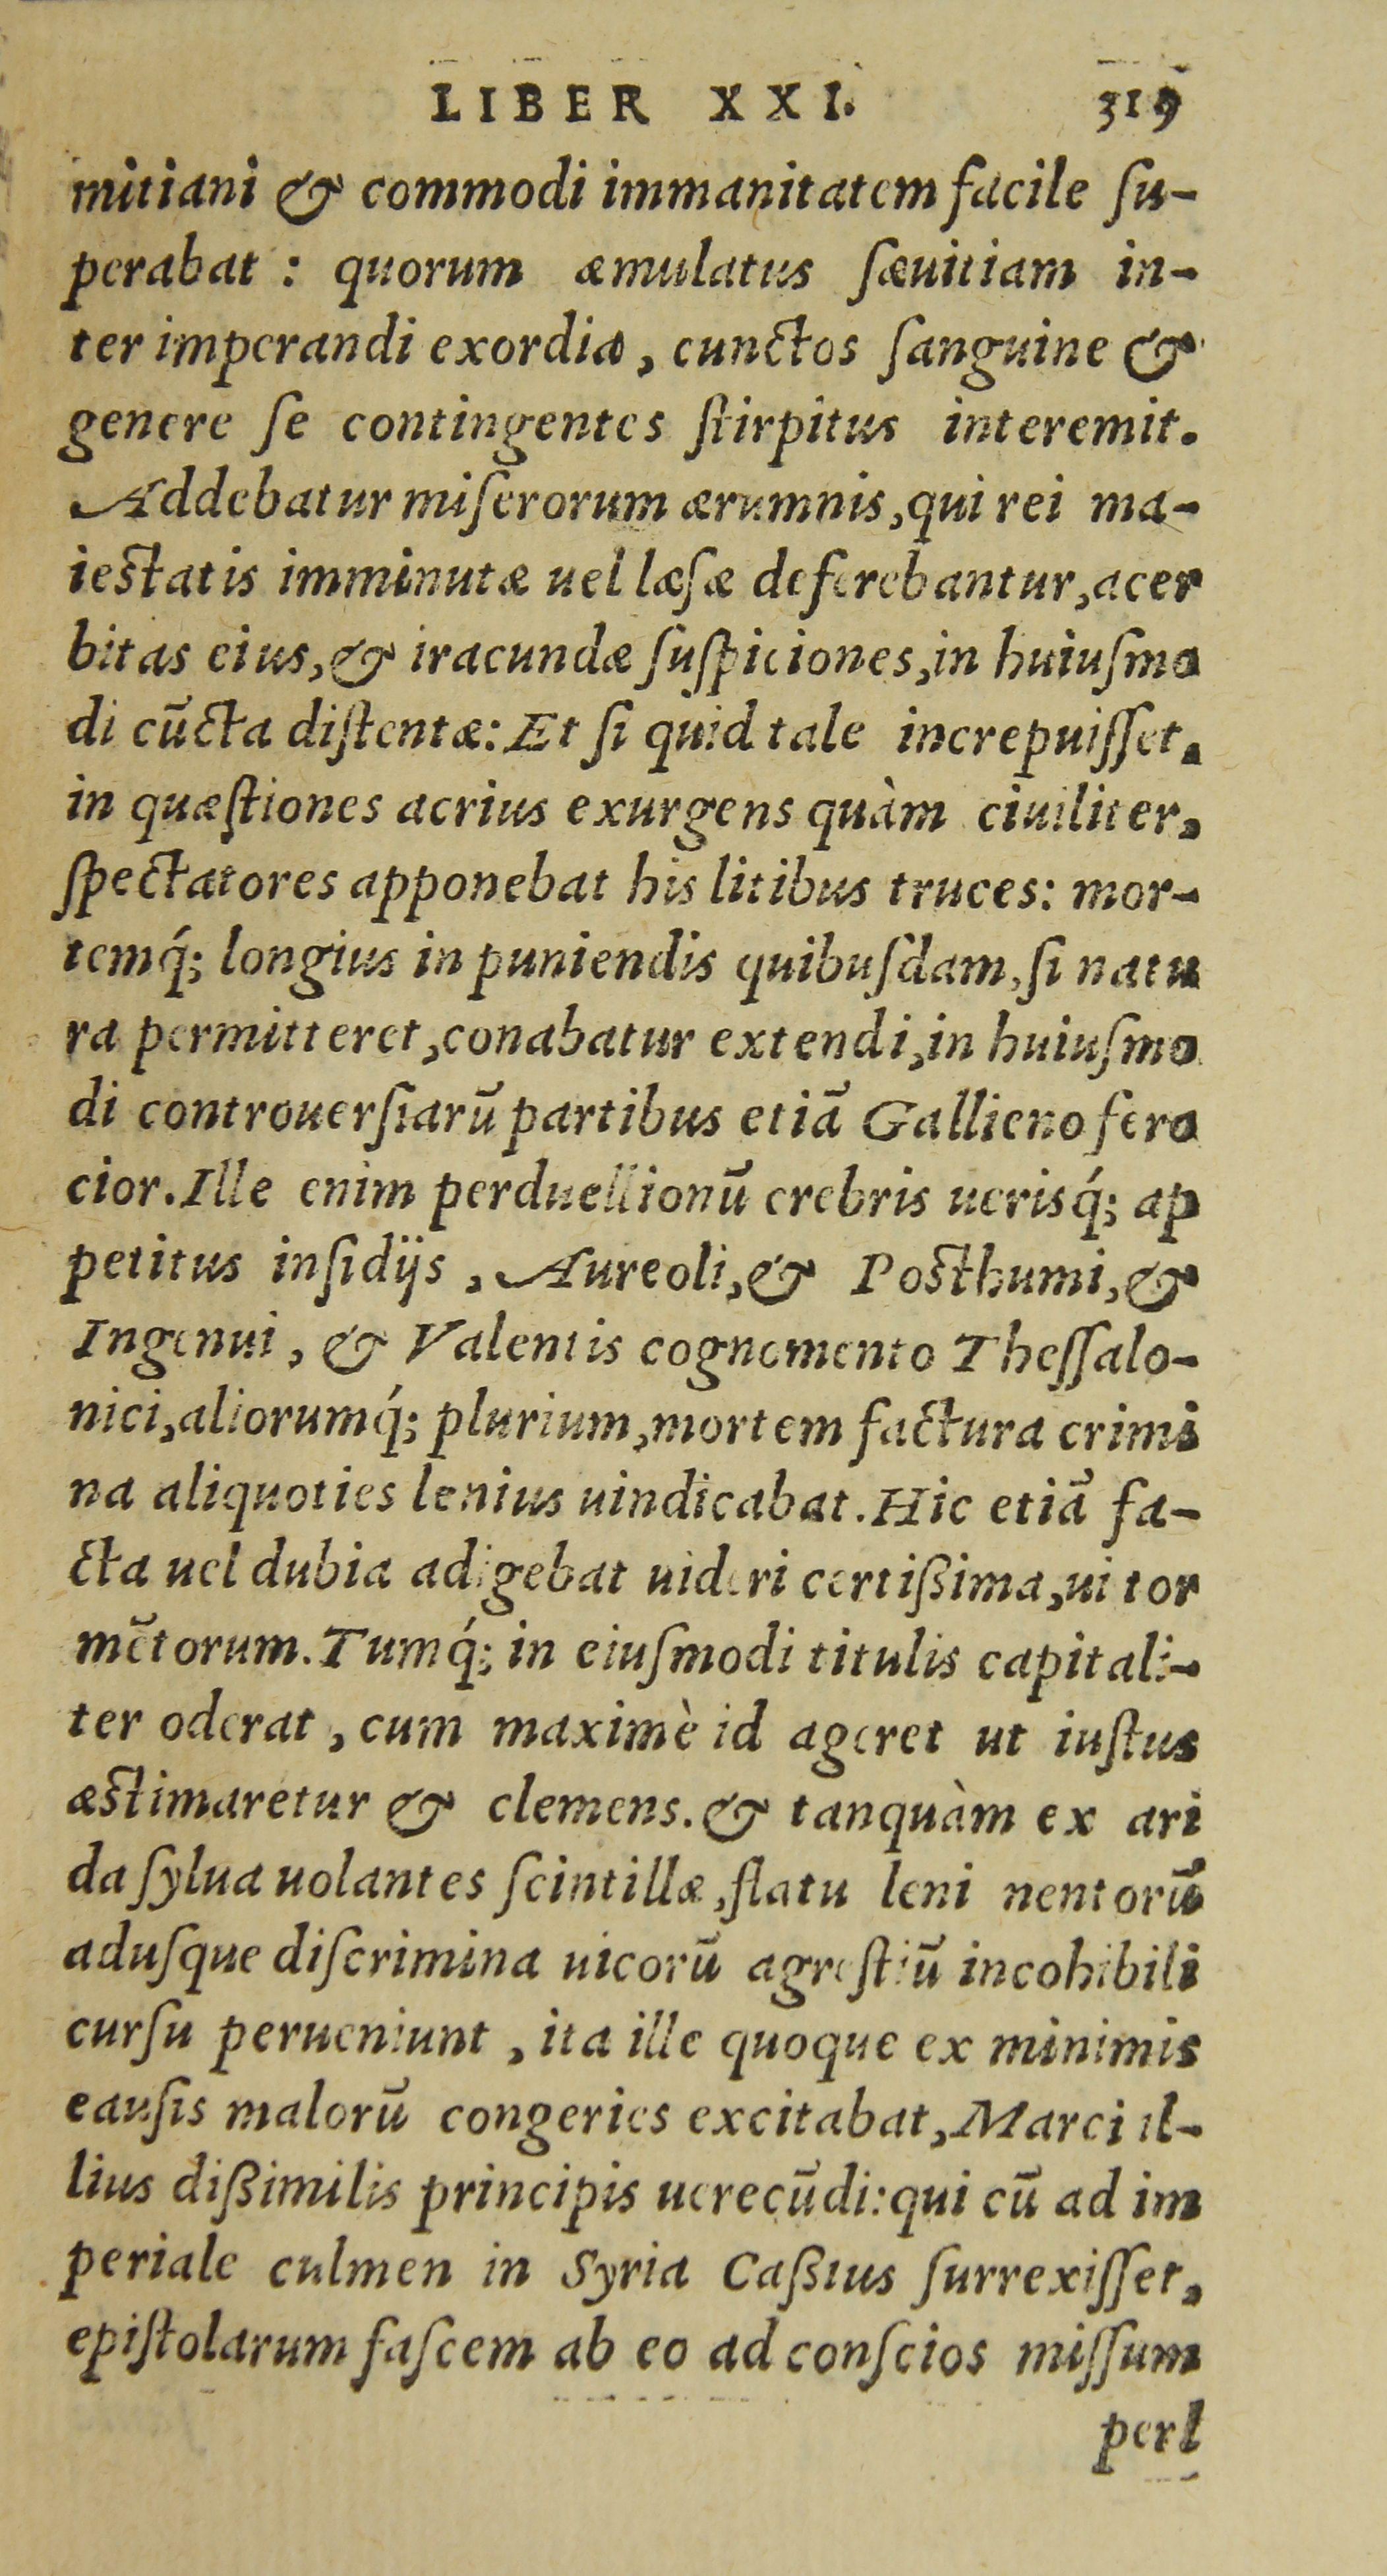 LIBER XXI. 319
mitiani & commodi immanitatem facile ſu-
perabat : quorum æmulatus ſæuitiam in-
ter imperandi exordia, cunctos ſanguine &
genere ſe contingentes ſtirpitus interemit.
Addebatur miſerorum ærumnis, qui rei ma-
ieſtatis imminutæ uel læſæ deferebantur, acer
bitas eius, & iracundæ ſuſpiciones, in huiuſmo
di cūcta diſtentæ: Et ſi quid tale increpuiſſet,
in quæſtiones acrius exurgens quàm ciuiliter,
ſpectatores apponebat his litibus truces: mor-
temq́; longius in puniendis quibuſdam, ſi natu
ra permitteret, conabatur extendi, in huiuſmo
di controuerſiarū partibus etiā Gallieno fero
cior. Ille enim perduellionū crebris uerisq́; ap
petitus inſidijs, Aureoli, & Poſthumi, &
Ingenui, & Valentis cognomento Theſſalo-
nici, aliorumq́; plurium, mortem factura crimi
na aliquoties lenius uindicabat. Hic etiā fa-
cta uel dubia adigebat uideri certißima, ui tor
mētorum. Tumq́; in eiuſmodi titulis capitali-
ter oderat, cum maximè id ageret ut iuſtus
æſtimaretur & clemens. & tanquàm ex ari
da ſylua uolantes ſcintillæ, flatu leni nentorū
aduſque diſcrimina uicorū agreſtiū incohibili
curſu perueniunt, ita ille quoque ex minimis
eauſis malorū congeries excitabat, Marci il-
lius dißimilis principis uerecūdi: qui cū ad im
periale culmen in Syria Caßius ſurrexiſſet,
epiſtolarum faſcem ab eo ad conſcios miſſum
perl